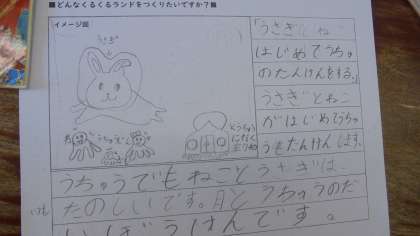 ■どんなくるくるランドをつくりたいですか？■
イメージ図
うさぎ
「うさぎとねこ
はじめてうちゅう
のたんけんをする。」
うさぎとねこ
がはじめてうちゅ
うをたんけんします。
うちゅうでもねことうさぎは
たのしいです。月とうちゅうのだ
いぼうけんです。